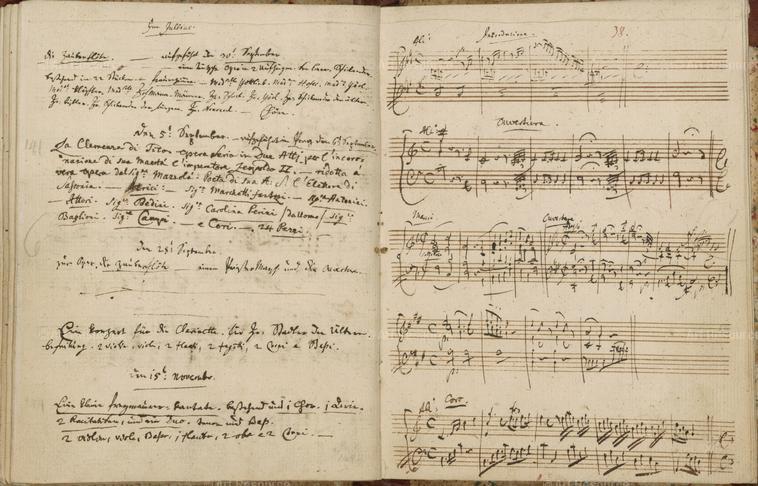 Im Jullius.
die Zauberflöte. — aufgeführt den 30:t September.
eine teutsche Oper in 2 Aufzügen. von Eman. Schikaneder.
bestehend in 22 Stücken. — Frauenzimer. — Mad:selle Gottlieb. Mad:me Hofer. Mad:me Görl.
Mad:me Klöpfler. Mad:selle Hofmann. Männer. Hr: Schack. Hr: Görl. Hr: Schikaneder der ältere.
Hr: Kistler. Hr: Schikaneder der jüngere. Hr: Nouseul. — Chöre.
Den 5:t September. — aufgeführt in Prag den 6:t September.
La Clemenza di Tito. opera seria in Due Atti. per l'incoro-
nazione di sua maestà l'imperatore Leopoldo II. — ridotta a
vera opera dal Sig:re Mazzolà. Poeta di sua A: S: l'Elettore di
Sassonia. — Attrici: — Sig:ra Marchetti fantozi. — Sig:ra Antonini.
— Attori. Sig:re Bedini. Sig:ra Carolina Perini /da uomo/ Sig:re
Baglioni. Sig:re Campi. — e Cori. — 24 Pezzi.
Den 28:t September.
zur Oper. die Zauberflöte — einen Priestermarsch und die Ouverture.
Ein konzert für die Clarinette. für Hr: Stadler den ältern.
begleitung. 2 violini, viole, 2 flauti, 2 fagotti, 2 Corni e Baßi.
den 15:t November.
Eine kleine freymaurer-kantate. bestehend aus 1 Chor. 1 Arie.
2 Recitativen, und ein Duo. tenor und Baß.
2 violini, viola, Baßo, 1 flauto, 2 oboe e 2 Corni. —
All:o Introduzione. 38.
Ouvertura.
All:o
Marcia. Ouverture
All:o Coro.